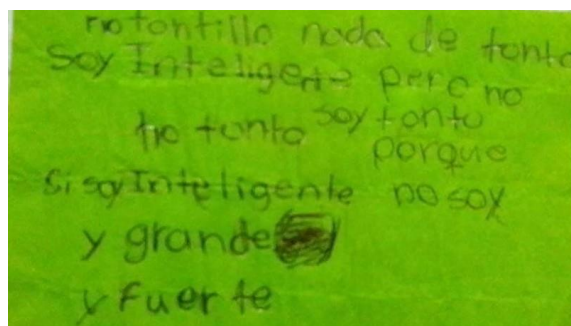 no tontillo nada de tonto
Soy Inteligente pero no
no tonto soy tonto
porque
si soy Inteligente no soy
y grande
y Fuerte